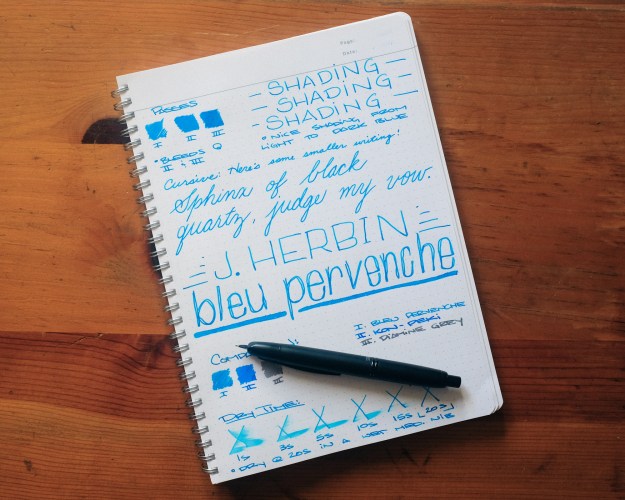 Page:
Date:
PASSES
I II III
• BLEEDS @
II & III
- SHADING -
- SHADING -
- SHADING -
• NICE SHADING FROM
LIGHT TO DARK BLUE
Cursive: Here's some smaller writing!
Sphinx of black
quartz, judge my vow.
J. HERBIN
bleu pervenche
I. BLEU PERVENCHE
II. KON-PEKI
III. DIAMINE GREY
I II III
DRY TIME:
1s 3s 5s 10s 15s [20s]
• DRY @ 20S IN A WET MED NIB